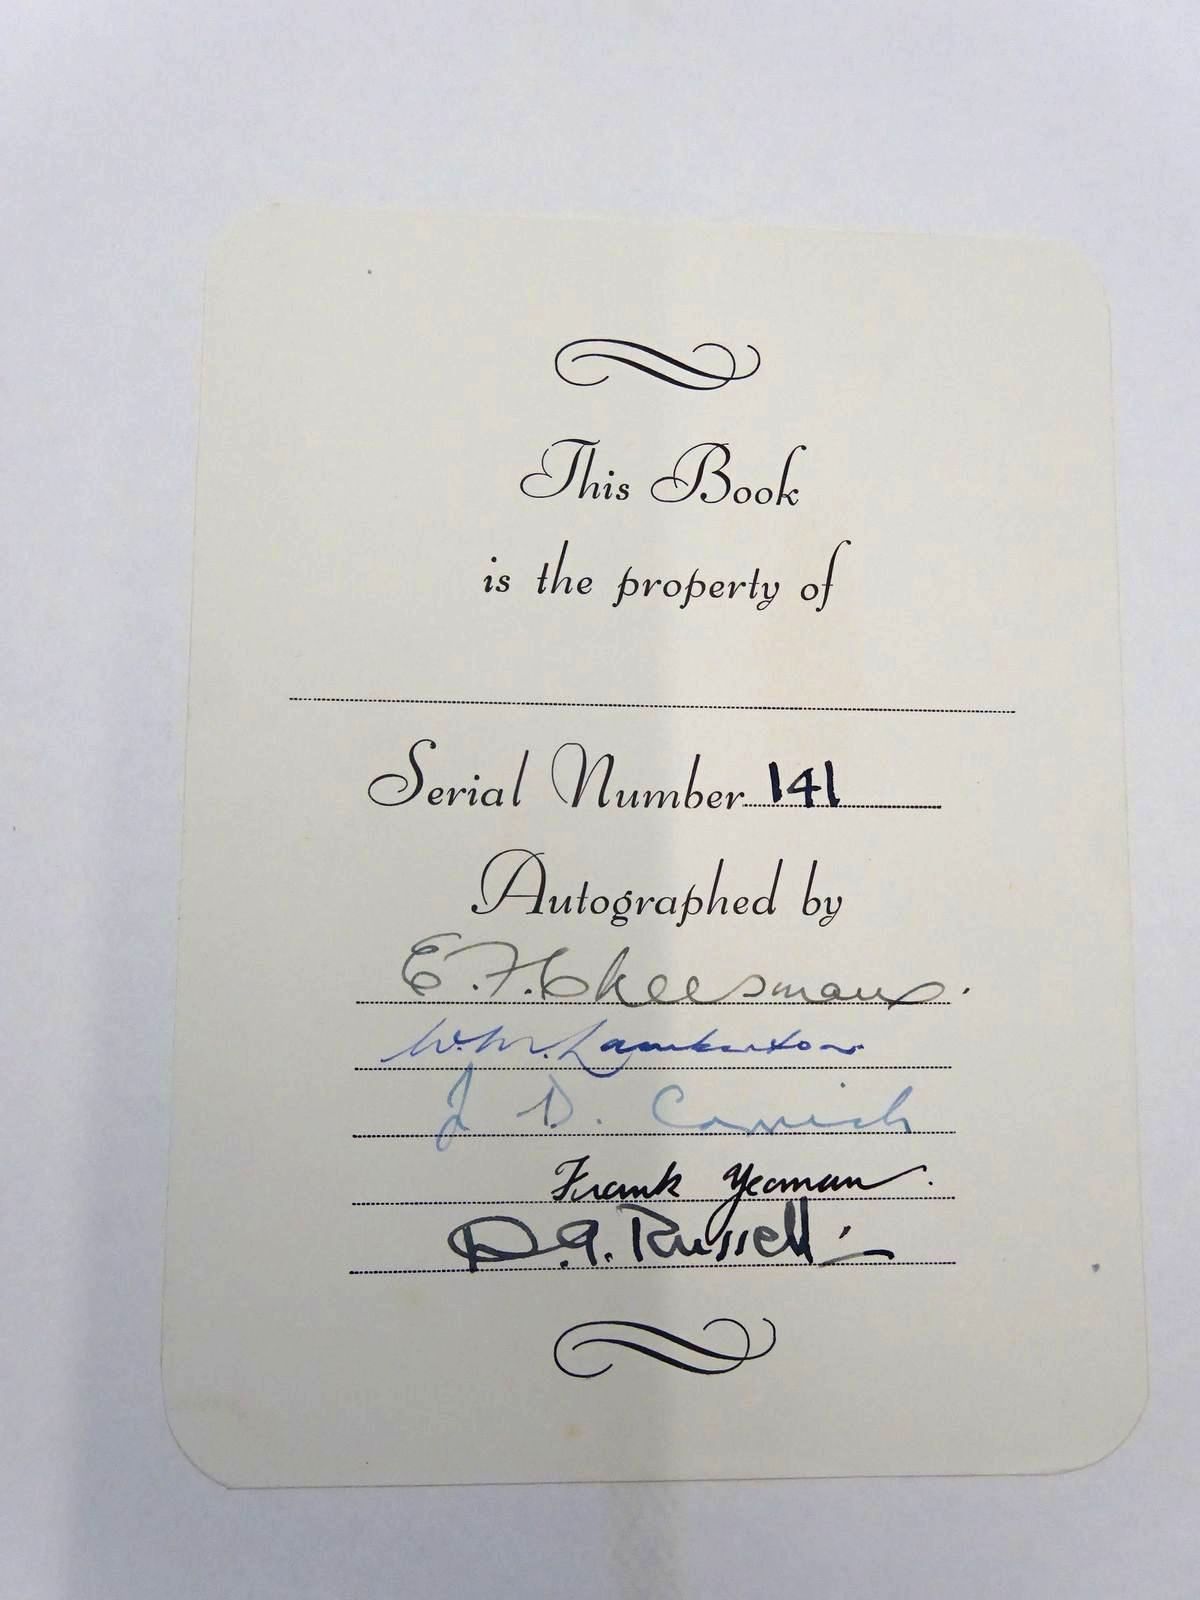 This Book
is the property of
Serial Number 141
Autographed by
E. F. Cheesman
W. M. Lamberton
J D. Cornish
Frank Yeoman
D. G. Russell